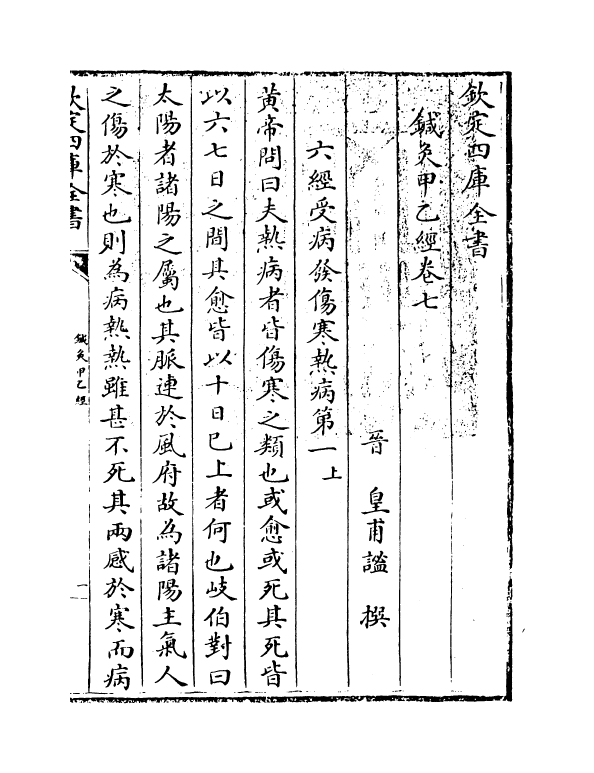 欽定四庫全書
鍼灸甲乙經卷七
晉　皇甫謐　撰
六經受病發傷寒熱病第一上
黃帝問曰夫熱病者皆傷寒之類也或愈或死其死皆
以六七日之間其愈皆以十日已上者何也岐伯對曰
太陽者諸陽之屬也其脈連於風府故為諸陽主氣人
之傷於寒也則為病熱熱雖甚不死其兩感於寒而病
欽定四庫全書
鍼灸甲乙經
一